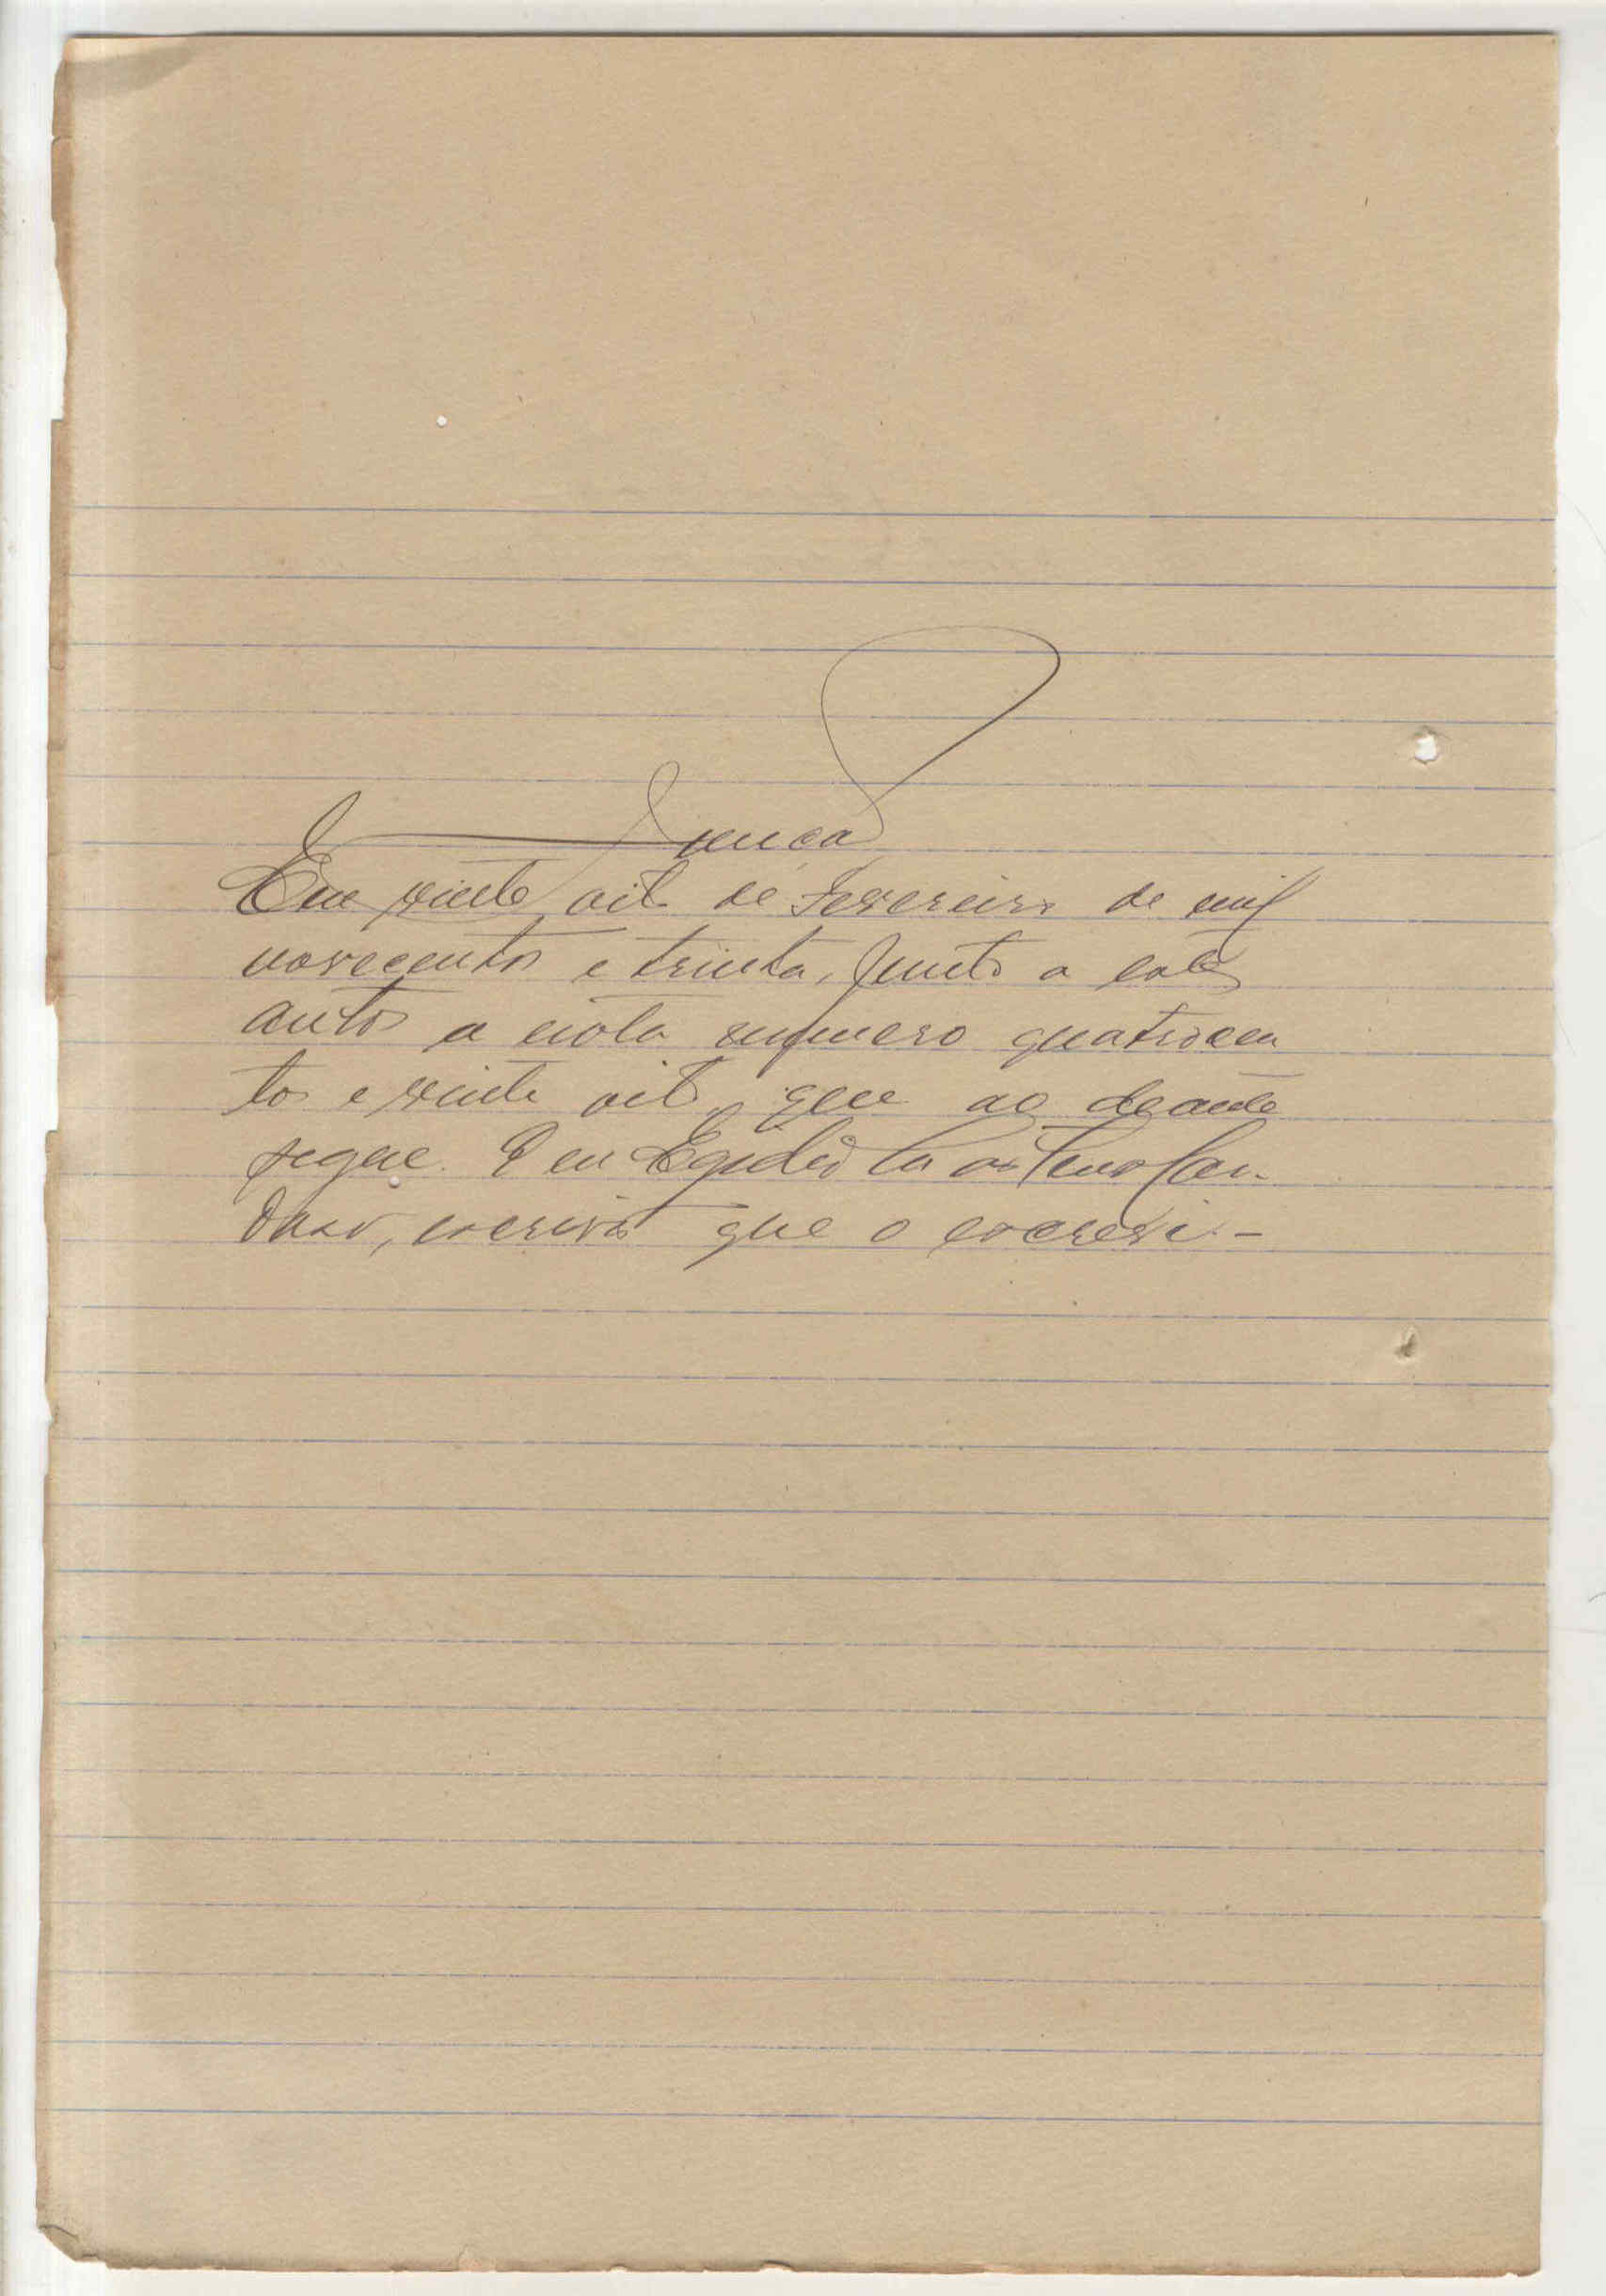 Junca
Em vinte oito de Fevereiro de mil
novecentos e trinta, junto a estes
autos a nota numero quatrocen
tos e vinte oito, que ao deante
segue. E eu Egidio
doso, escrivão que o escrevi. -